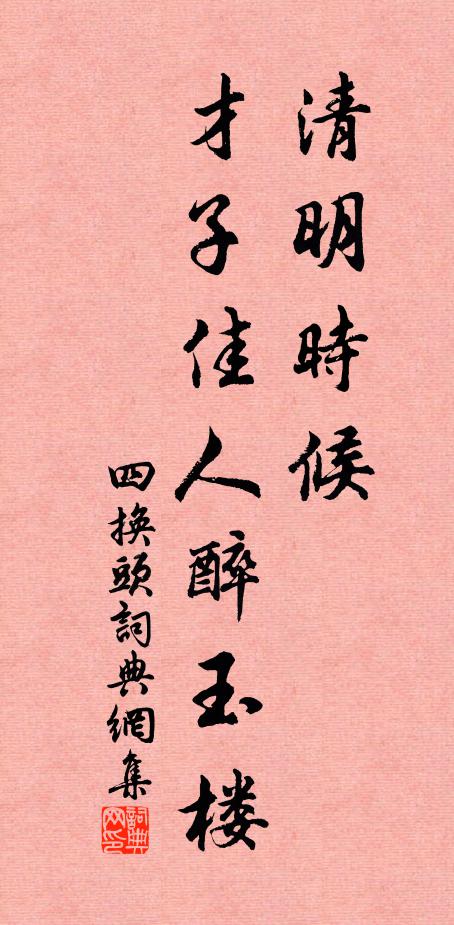 清明時候
才子佳人醉玉楼
四換頭詞典網集
詞典
网印